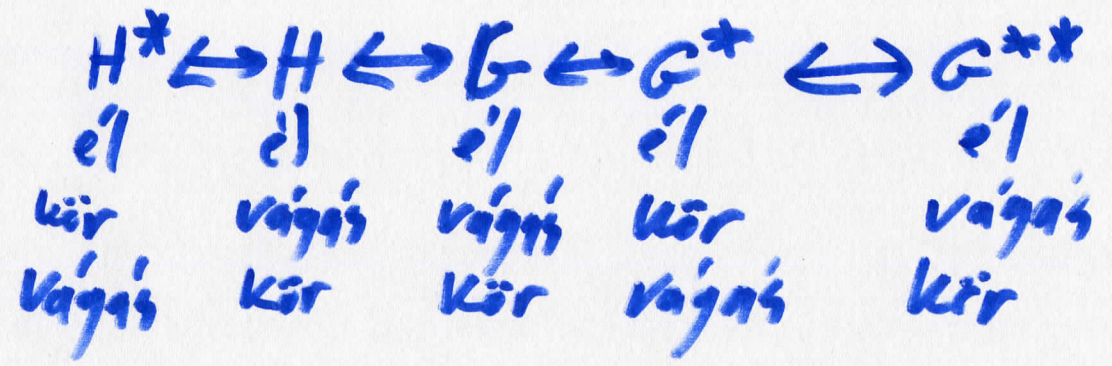 H* ↔ H ↔ G ↔ G* ↔ G**
él él él él él
kör vágás vágás kör vágás
vágás kör kör vágás kör